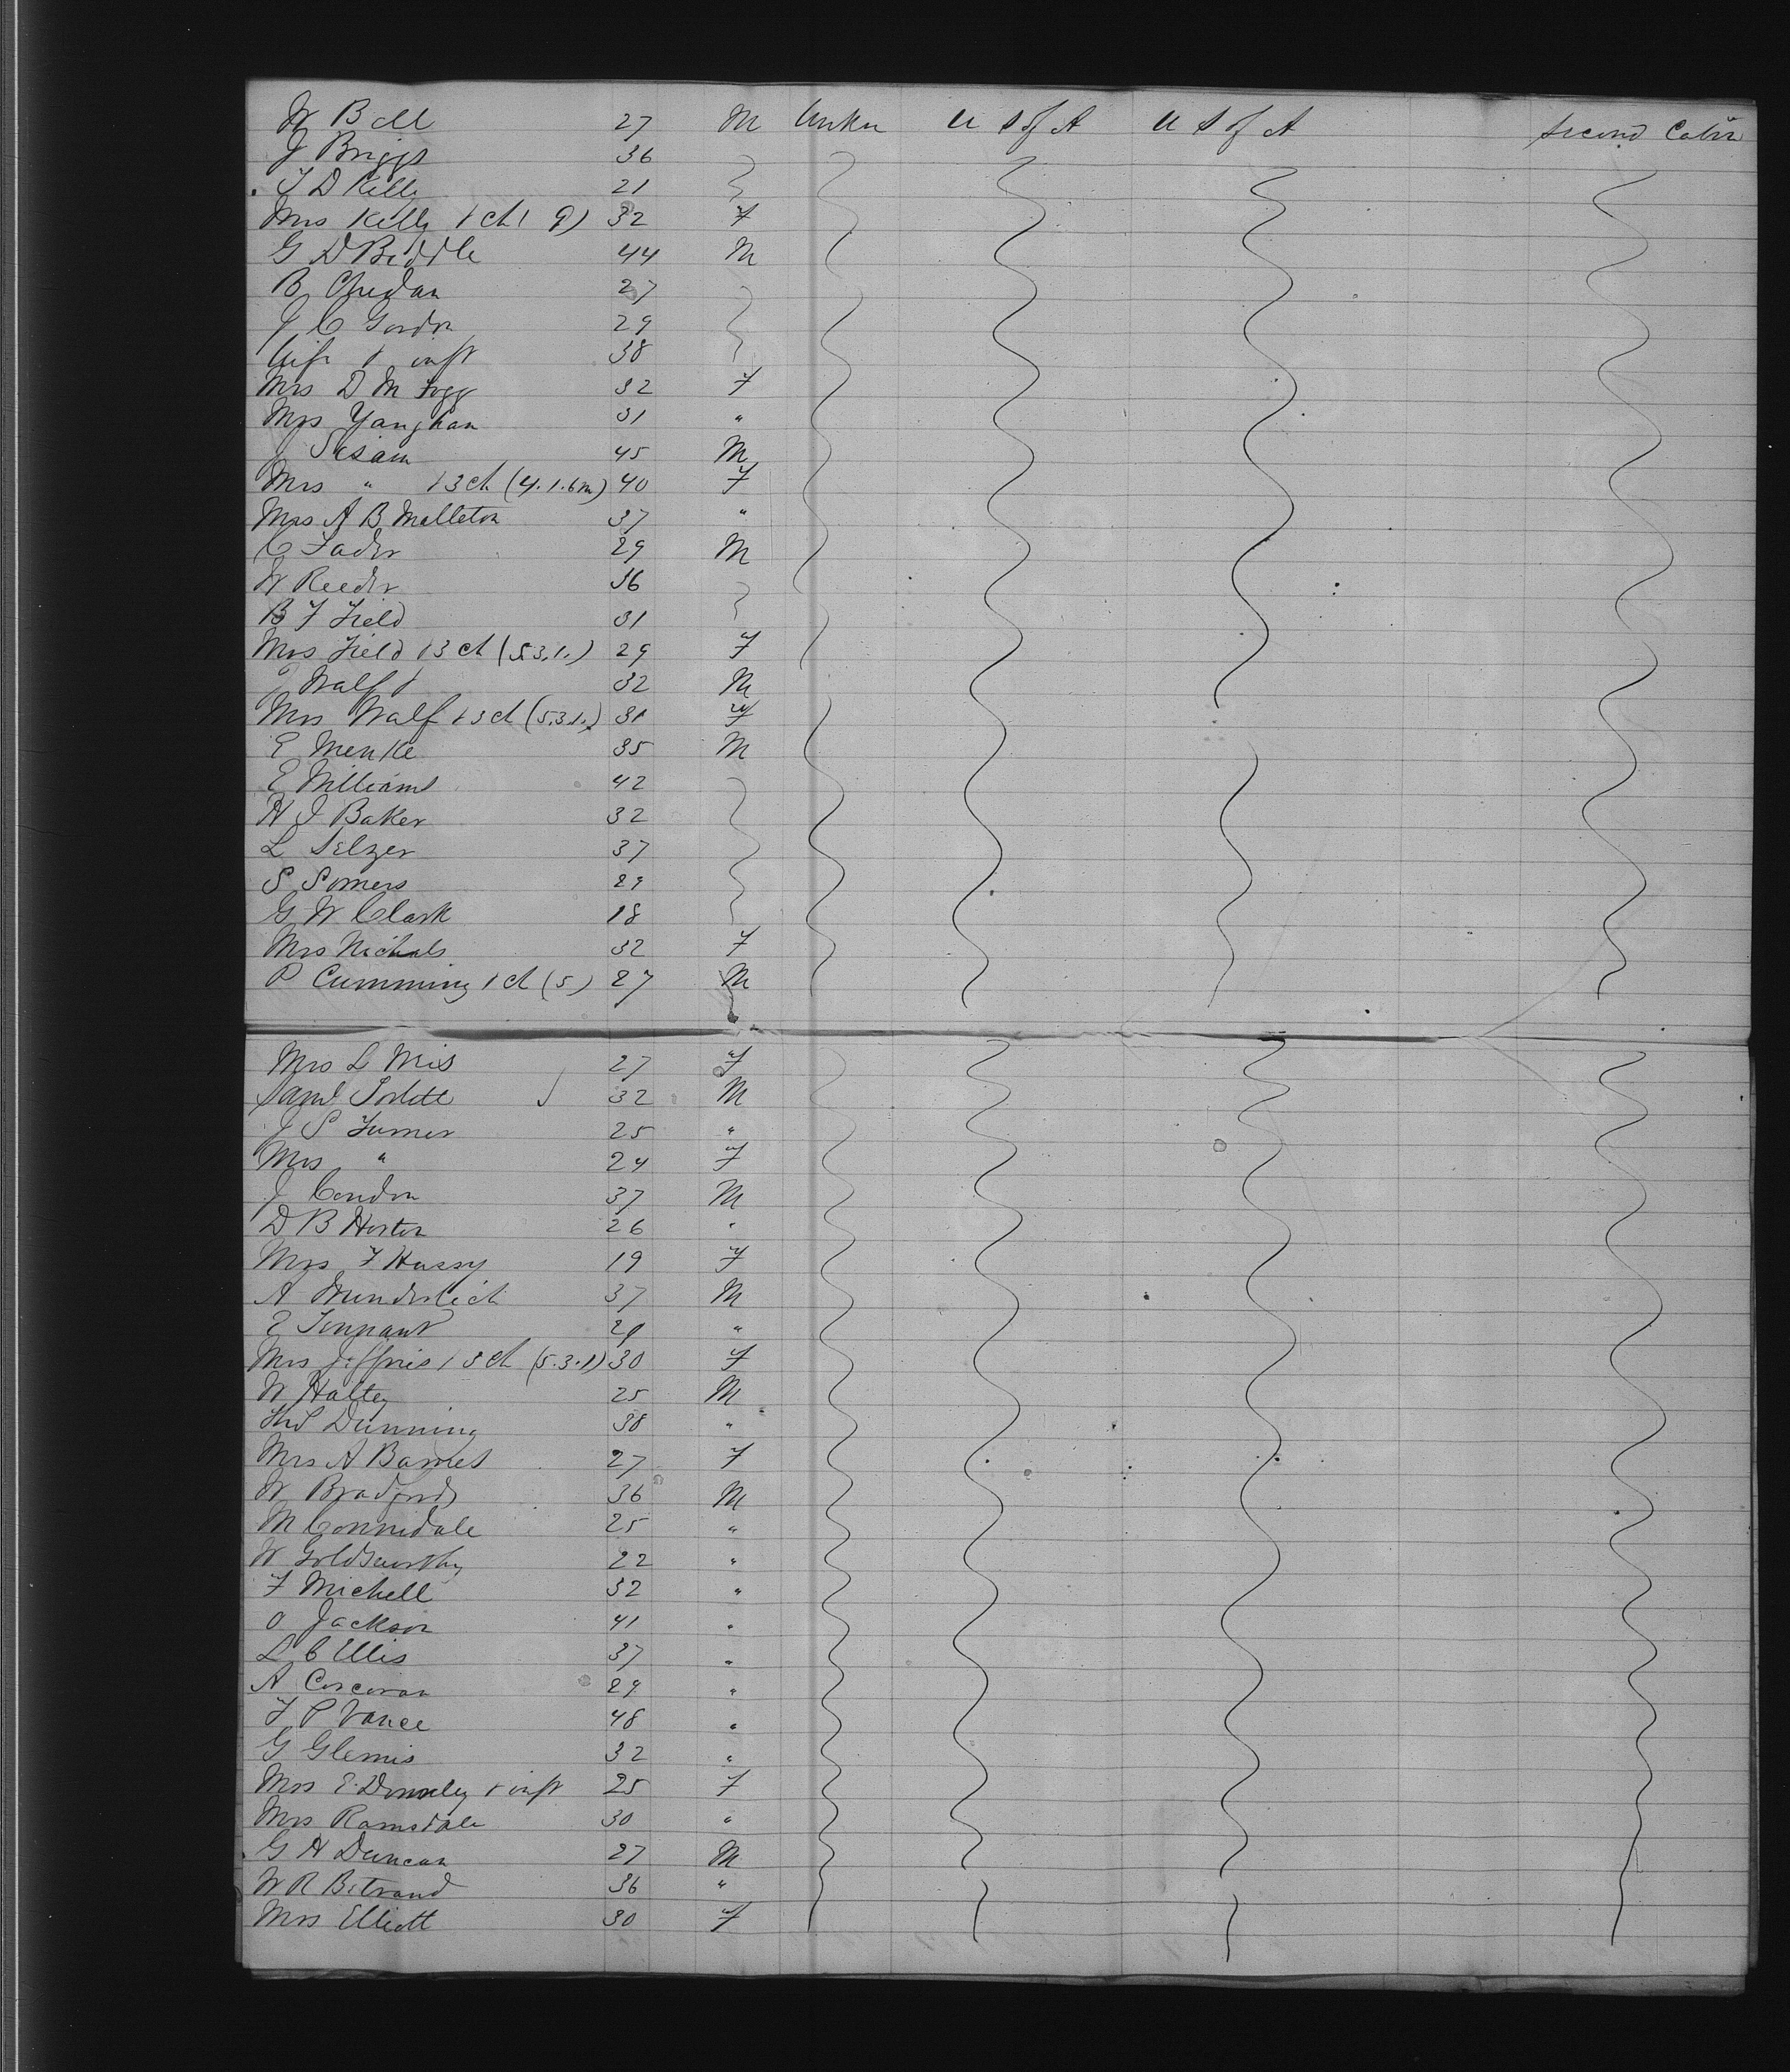 W Bell 27 M Unkn U S of A U S of A Second Cabin
J Briggs 36
T D Kelly 21
Mrs Kelly & ch ( 9) 32 F
G D Biddle 44 M
B 27
J C Gordon 29
Wife & inft 38
Mrs D M Fogg 32 F
Mrs Yanghan 31 "
J Sisam 45 M
Mrs " & 3 ch (4.1.6m) 40 F
Mrs A B Malleton 37 "
C Fader 29 M
W Reeder 36
B F Field 31
Mrs Field & 3 ch (5.3.1.) 29 F
Walf & 32 M
Mrs Walf & 3 ch (5.3.1.) 31 F
E Menke 35 M
E Williams 42
H J Baker 32
L Selzer 37
S Somers 29
G W Clark 18
Mrs Nichals 32 F
P Cumming 1 ch (5) 27 M
Mrs L Mis 27 F
Saml 32 M
J S Turner 25 "
Mrs " 24 F
J Condon 37 M
D B Horton 26 "
Mrs F Hussy 19 F
A Wunderlich 37 M
E Tennant 29 "
Mrs Jeffris & 3 ch (5.3.1) 30 F
W Haltey 25 M
Ths Dunning 38 "
Mrs A Barnes 27 F
W Bradford 36 M
M Connidale 25 "
W Goldsworthy 22 "
F Michell 32 "
O Jackson 41 "
L C Ellis 37 "
A Corcoran 29 "
F P Vance 48 "
G Glennis 32 "
Mrs E Donnley & inft 25 F
Mrs Ramsdale 30 "
G H Duncan 27 M
W R Betrand 36 "
Mrs Elliott 30 F